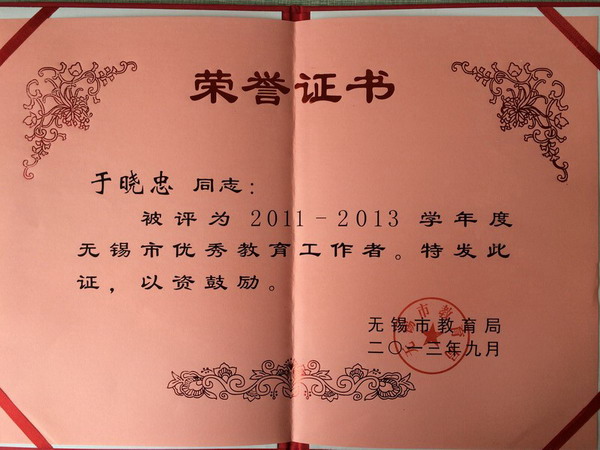 荣誉证书
于晓忠 同志：
被评为 2011－2013 学年度
无锡市优秀教育工作者。特发此
证，以资鼓励。
无锡市教育局
二〇一三年九月
无锡市教育局